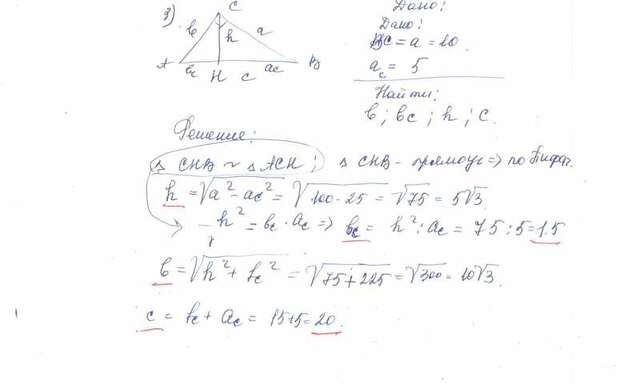 3)
C
b
h
a
A
bc
H
c
ac
B
Дано:
Дано:
BC = a = 10
ac = 5
Найти:
b; bc; h; c.
Решение:
△ CHB ~ △ ACH; △ CHB - прямоуг => по Пифаг.
h = √a² - ac² = √100 - 25 = √75 = 5√3
h² = bc · ac => bc = h² : ac = 75 : 5 = 15
b = √h² + bc² = √75 + 225 = √300 = 10√3.
c = bc + ac = 15+5 = 20.